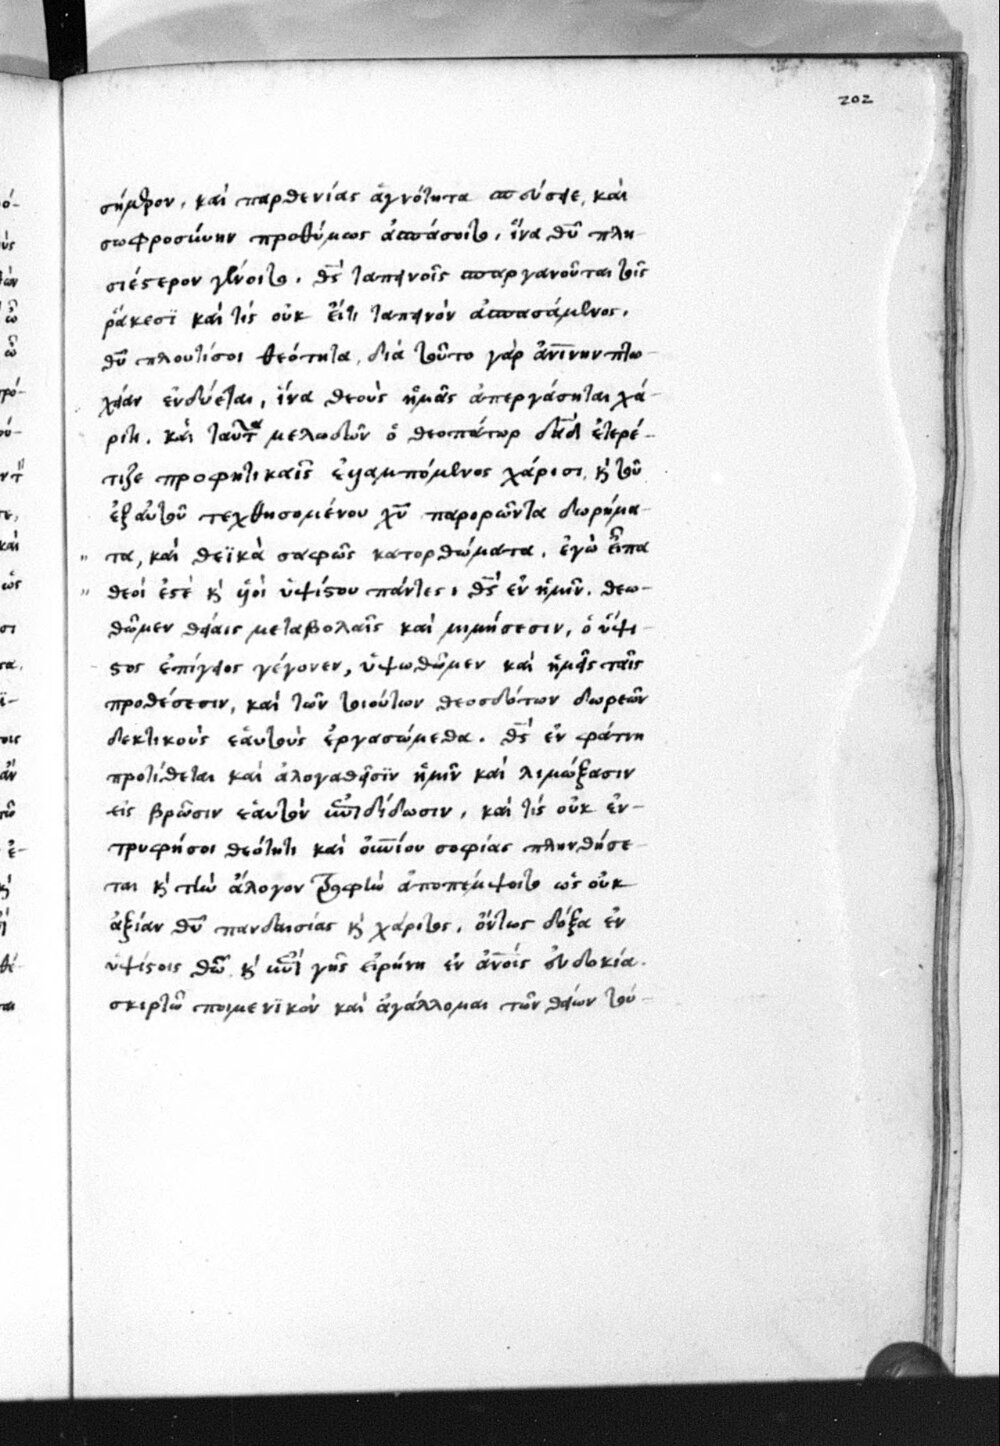 202
σήμερον, καὶ παρθενίας ἁγνότητα σπεύσειε, καὶ
σωφροσύνην προθύμως ἀσπάσοιτο, ἵνα θῦ πλη-
σιέστερον γένοιτο. θς ταπεινοῖς σπαργανοῦται τοῖς
ῥάκεσϊ καὶ τίς οὐκ ἔτι ταπεινὸν ἀσπασάμενος,
θῦ πλουτίσοι θεότητα, διὰ τοῦτο γὰρ ἀνίνην πτω-
χείαν ἐνδύεται, ἵνα θεοὺς ἡμᾶς ἀπεργάσηται χά-
ριτι. καὶ ταῦτα μελωδῶν ὁ θεοπάτωρ δαδ ἐτερέ-
τιζε προφητικαῖς ἐλλαμπόμενος χάρισι, κ τοῦ
ἐξ αὐτοῦ τεχθησομένου χῦ παρορῶντα δωρήμα-
τα, καὶ θεϊκὰ σαφῶς κατορθώματα, ἐγὼ εἶπα
θεοί ἐστέ κ υἱοὶ ὑψίστου πάντες, θς ἐν ἡμῖν. θεω-
θῶμεν θείαις μεταβολαῖς καὶ μιμήσεσιν, ὁ ὕψι-
στος ἐπίγειος γέγονεν, ὑψωθῶμεν καὶ ἡμεῖς ταῖς
προθέσεσιν, καὶ τῶν τοιούτων θεοσδότων δωρεῶν
δεκτικοὺς ἑαυτοὺς ἐργασώμεθα. θς ἐν φάτνη
προτίθεται καὶ ἀλογαθεῖσϊν ἡμῖν καὶ λιμώξασιν
εἰς βρῶσιν ἑαυτὸν ἐπιδίδωσιν, καὶ τίς οὐκ ἐν-
τρυφήσοι θεότητι καὶ σοφίας πλησθήσε-
ται κ τὴν ἄλογον τροφὴν ἀποπέμψοιτο ὡς οὐκ
ἀξίαν θῦ πανδαισίας κ χάριτος, ὄντως δόξα ἐν
ὑψίστοις θῶ κ ἐπὶ γῆς εἰρήνη ἐν ἀνοις εὐδοκία.
σκιρτῶ ποιμενϊκὸν καὶ ἀγάλλομαι τῶν θείων τού-